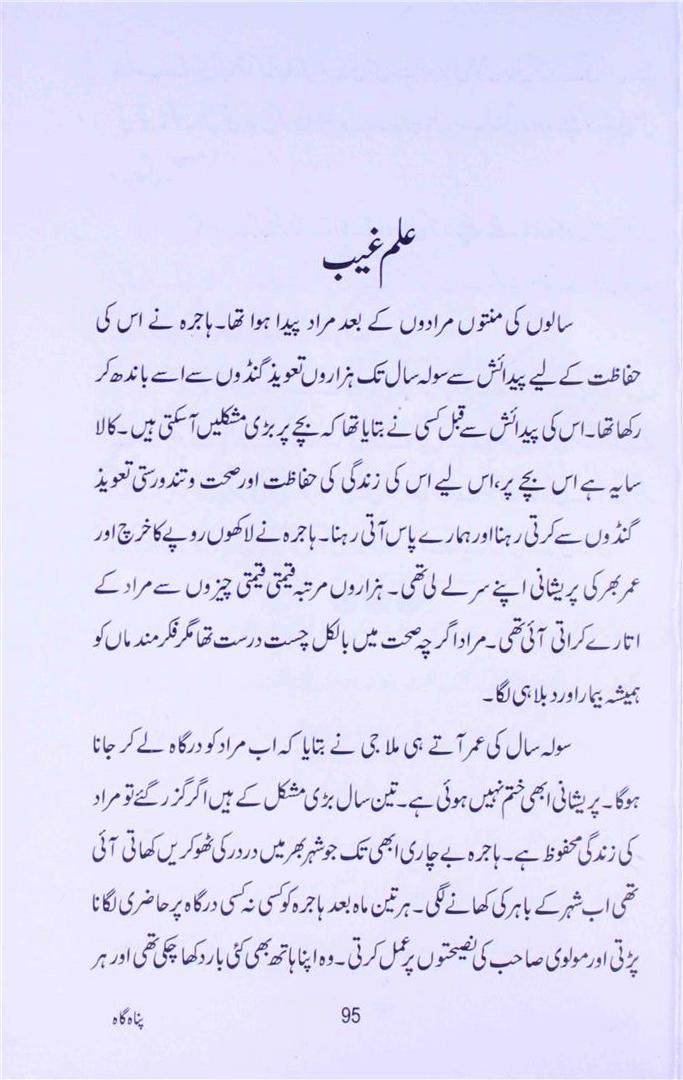 علم غیب
سالوں کی منتوں مرادوں کے بعد مراد پیدا ہوا تھا۔ ہاجرہ نے اس کی
حفاظت کے لیے پیدائش سے سولہ سال تک ہزاروں تعویذ گنڈوں سے اسے باندھ کر
رکھا تھا۔ اس کی پیدائش سے قبل کسی نے بتایا تھا کہ بچے پر بڑی مشکلیں آسکتی ہیں۔ کالا
سایہ ہے اس بچے پر، اس لیے اس کی زندگی کی حفاظت اور صحت و تندورستی تعویذ
گنڈوں سے کرتی رہنا اور ہمارے پاس آتی رہنا۔ ہاجرہ نے لاکھوں روپے کا خرچ اور
عمر بھر کی پریشانی اپنے سر لے لی تھی۔ ہزاروں مرتبہ قیمتی قیمتی چیزوں سے مراد کے
اتارے کراتی آئی تھی۔ مراد اگرچہ صحت میں بالکل چست درست تھا مگر فکرمند ماں کو
ہمیشہ بیمار اور دبلا ہی لگا۔
سولہ سال کی عمر آتے ہی ملا جی نے بتایا کہ اب مراد کو درگاہ لے کر جانا
ہوگا۔ پریشانی ابھی ختم نہیں ہوئی ہے۔ تین سال بڑی مشکل کے ہیں اگر گزر گئے تو مراد
کی زندگی محفوظ ہے۔ ہاجرہ بے چاری ابھی تک جو شہر بھر میں دردر کی ٹھوکریں کھاتی آئی
تھی اب شہر کے باہر کی کھانے لگی۔ ہر تین ماہ بعد ہاجرہ کو کسی نہ کسی درگاہ پر حاضری لگانا
پڑتی اور مولوی صاحب کی نصیحتوں پر عمل کرتی۔ وہ اپنا ہاتھ بھی کئی بار دکھا چکی تھی اور ہر
پناہ گاہ 95